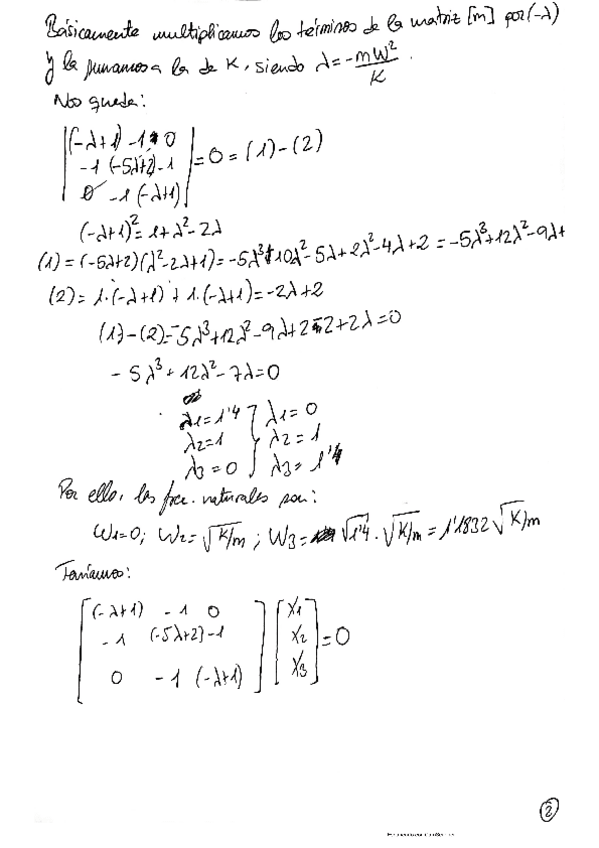 Básicamente multiplicamos los términos de la matriz [m] por (-λ)
y la sumamos a la de K, siendo λ = -mW²/K.
Nos queda:
|(-λ+1) -1 0|
|-1 (-5λ+2) -1| = 0 = (1)-(2)
|0 -1 (-λ+1)|
(-λ+1)² = 1+λ²-2λ
(1) = (-5λ+2)(λ²-2λ+1) = -5λ³+10λ²-5λ+2λ²-4λ+2 = -5λ³+12λ²-9λ+
(2) = 1·(-λ+1) + 1·(-λ+1) = -2λ+2
(1)-(2) = -5λ³+12λ²-9λ+2-2+2λ=0
-5λ³+12λ²-7λ=0
λ1=1'4 } λ1=0
λ2=1 } λ2=1
λ3=0 } λ3=1'4
Por ello, las frec. naturales son:
W1=0; W2=√K/m; W3= √1'4·√K/m = 1'1832√K/m
[(-λ+1) -1 0] [X1]
[-1 (-5λ+2) -1] [X2] = 0
[0 -1 (-λ+1)] [X3]
2